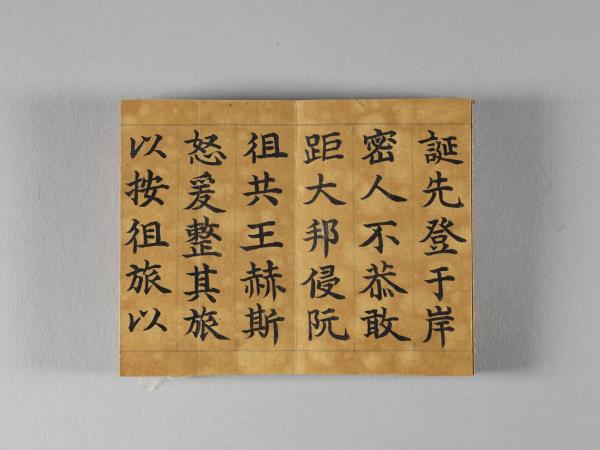 誕先登于岸
密人不恭敢
距大邦侵阮
徂共王赫斯
怒爰整其旅
以按徂旅以